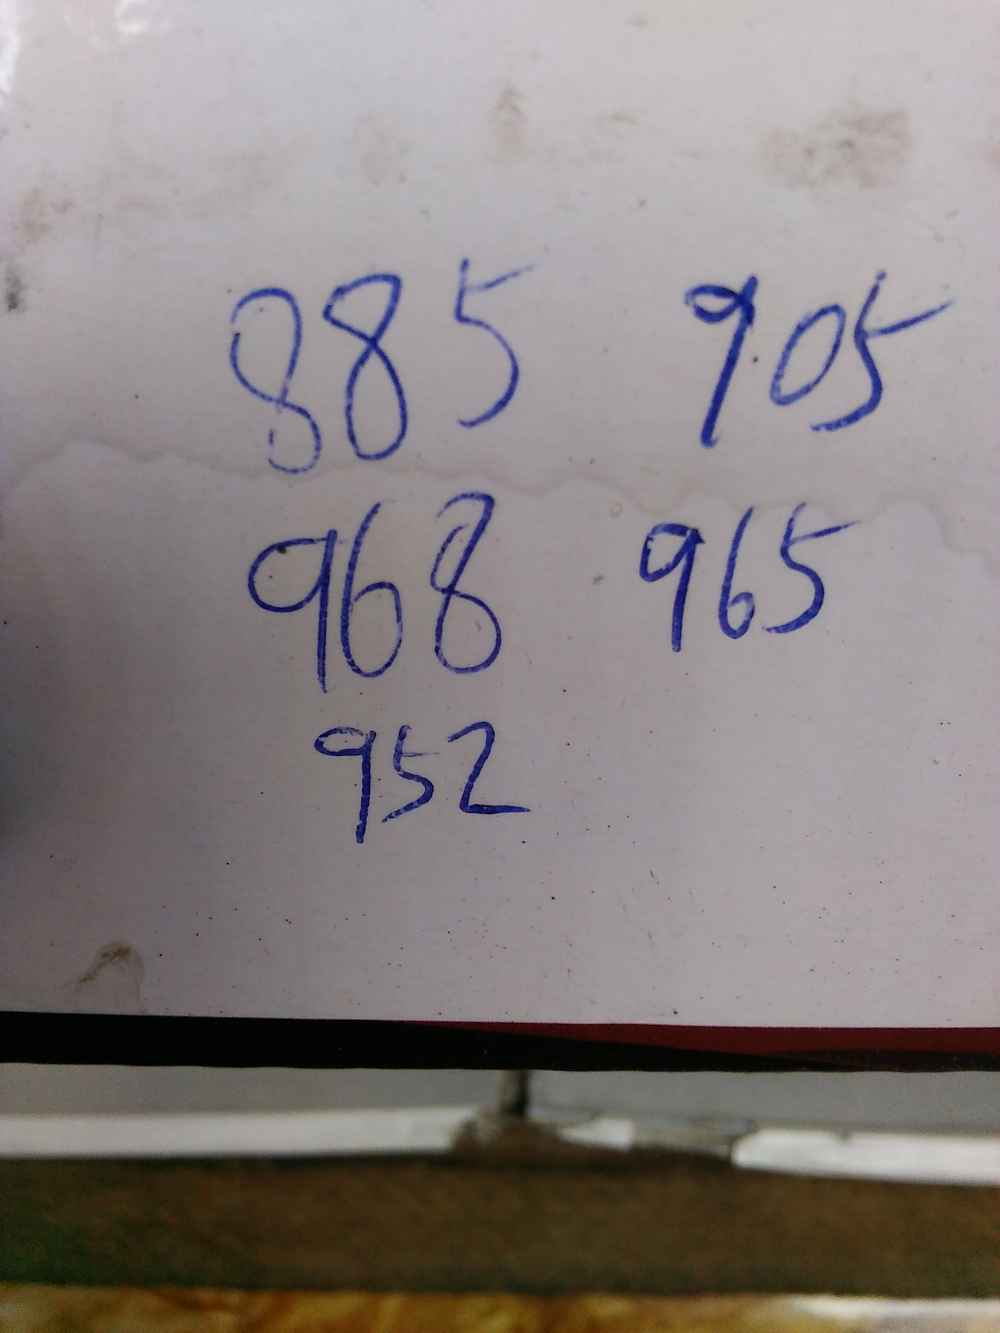 885 905
968 965
952